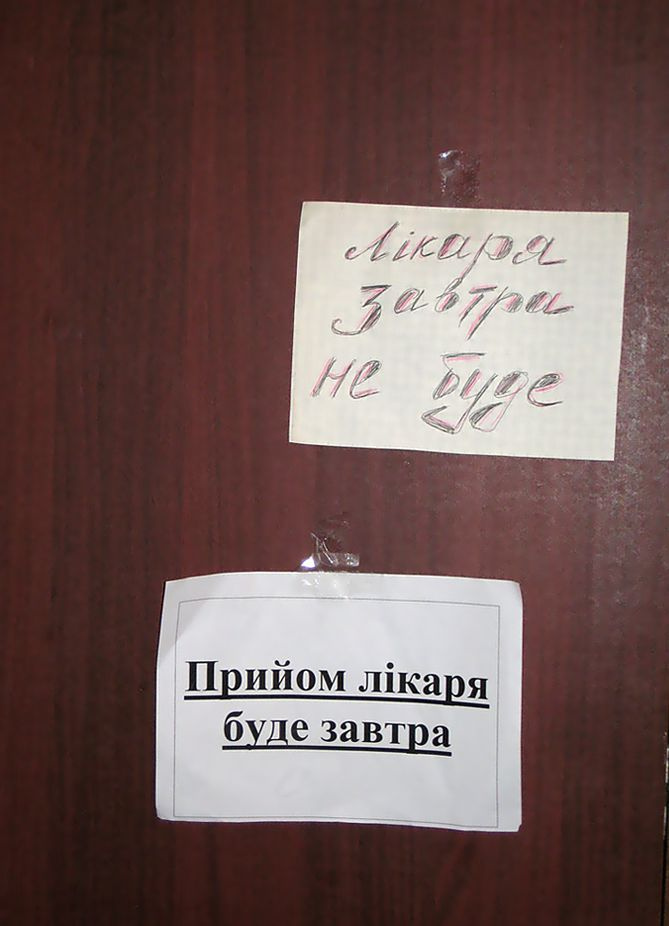 Лікаря
завтра
не буде
Прийом лікаря
буде завтра